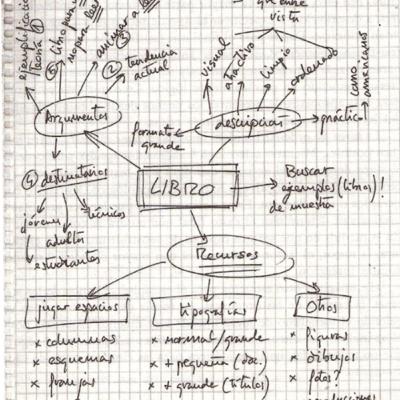 que entre
vista
ejemplificación
teoría
⑤ libro para
no para leer
animar a leer
③
② tendencia
actual
visual
atractivo
limpio
ordenado
como
americanos
Argumentos
formato
grande
descripción
práctico
④ destinatarios
LIBRO
Buscar
ejemplos (libros)!
de muestra
jóvenes
adultos
estudiantes
técnicos
Recursos
jugar espacios
tipografías
Otros
x columnas
x esquemas
x franjas
x normal/grande
x + pequeña (doc.)
x + grande (títulos)
x figuras
x dibujos
x fotos?